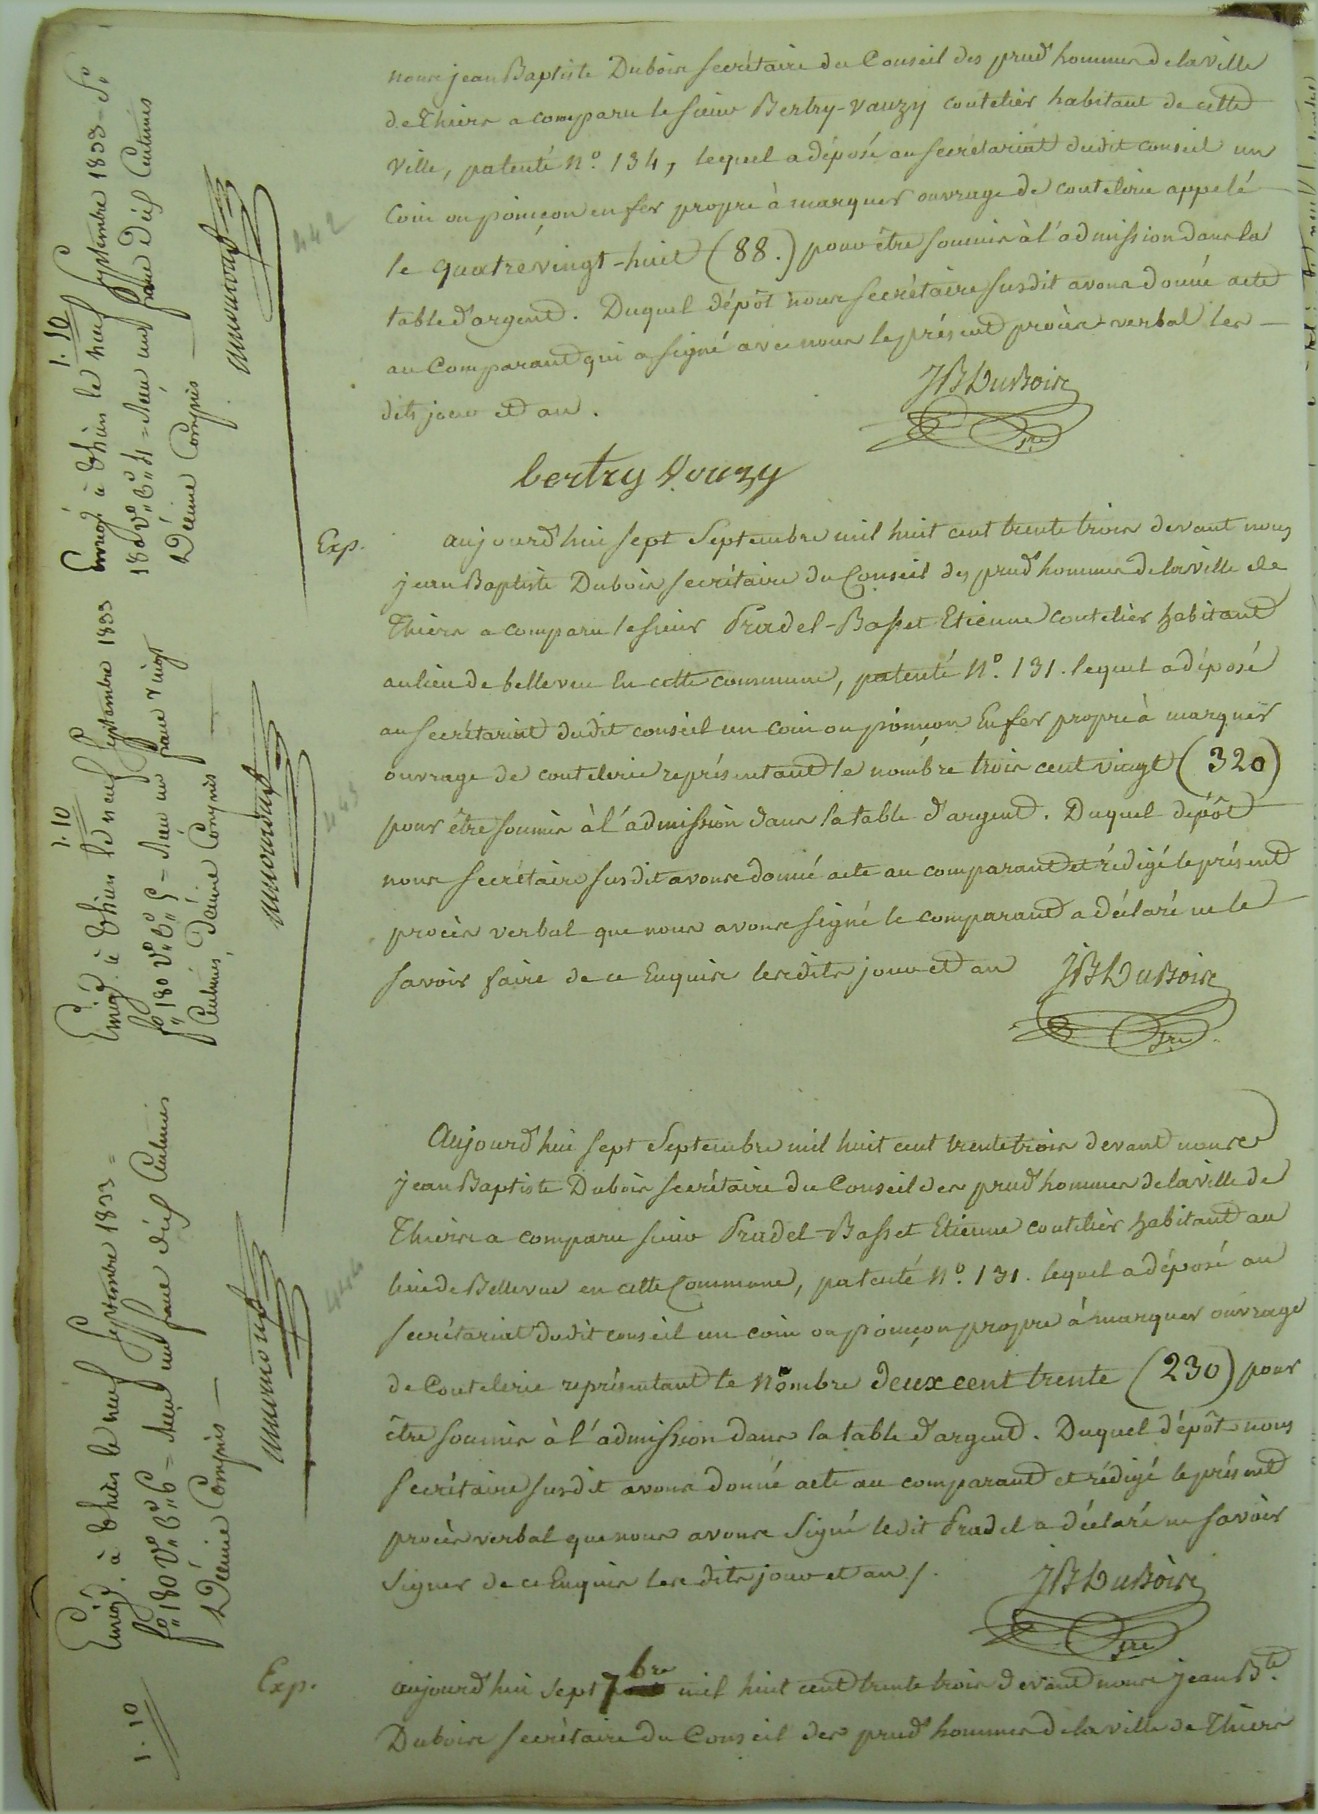 nous jean Baptiste Dubois secrétaire du Conseil des prud'hommes de la ville
de Thiers a comparu le sieur Bertry-Vauzy coutelier habitant de cette
ville, patenté N° 134, lequel a déposé au secrétariat dudit conseil un
coin ou poinçon en fer propre à marquer ouvrage de coutelerie appelé
le quatrevingt-huit (88.) pour être soumis à l'admission dans la
table d'argent. Duquel dépôt nous secrétaire susdit avons donné acte
au Comparant qui a signé avec nous le présent procès-verbal les
dits jour et an.
JB Dubois
sre
bertry Vouzy
Exp.
aujourd'hui sept Septembre mil huit cent trente trois devant nous
jean Baptiste Dubois secrétaire du Conseil des prud'hommes de la ville de
Thiers a comparu le sieur Pradel-Basset Etienne coutelier habitant
au lieu de bellevue en cette commune, patenté N° 131. lequel a déposé
au secrétariat dudit conseil un coin ou poinçon en fer propre à marquer
ouvrage de coutelerie représentant le nombre trois cent vingt (320)
pour être soumis à l'admission dans la table d'argent. Duquel dépôt
nous secrétaire susdit avons donné acte au comparant et rédigé le présent
procès verbal que nous avons signé le comparant a déclaré ne le
savoir faire de ce Enquis lesdits jour et an
JB Dubois
sre
Aujourd'hui sept Septembre mil huit cent trente trois devant nous
jean Baptiste Dubois secrétaire du Conseil des prud'hommes de la ville de
Thiers a comparu sieur Pradel-Basset Etienne coutelier habitant au
lieu de Bellevue en cette Commune, patenté N° 131. lequel a déposé au
secrétariat dudit conseil un coin ou poinçon propre à marquer ouvrage
de Coutelerie représentant le Nombre deux cent trente (230) pour
être soumis à l'admission dans la table d'argent. Duquel dépôt nous
secrétaire susdit avons donné acte au comparant et rédigé le présent
procès verbal que nous avons signé ledit Pradel a déclaré ne savoir
signer de ce Enquis lesdits jour et an /.
JB Dubois
sre
Exp.
aujourd'hui sept 7bre mil huit cent trente trois devant nous jean Bte
Dubois secrétaire du Conseil des prud'hommes de la ville de Thiers
1.10
Enregé à Thiers le neuf Septembre 1833 - fo
180 Vo Co 4 = Reçu un franc dix Centimes
Décime Compris
442
1.10
Enregé à Thiers le neuf Septembre 1833
fo 180 Vo Co 5 = Reçu un franc vingt
Centimes, Décime Compris
443
Enregé à Thiers le neuf Septembre 1833 =
fo 180 Vo Co 6 = Reçu un franc dix Centimes
Décime Compris
444
1.10